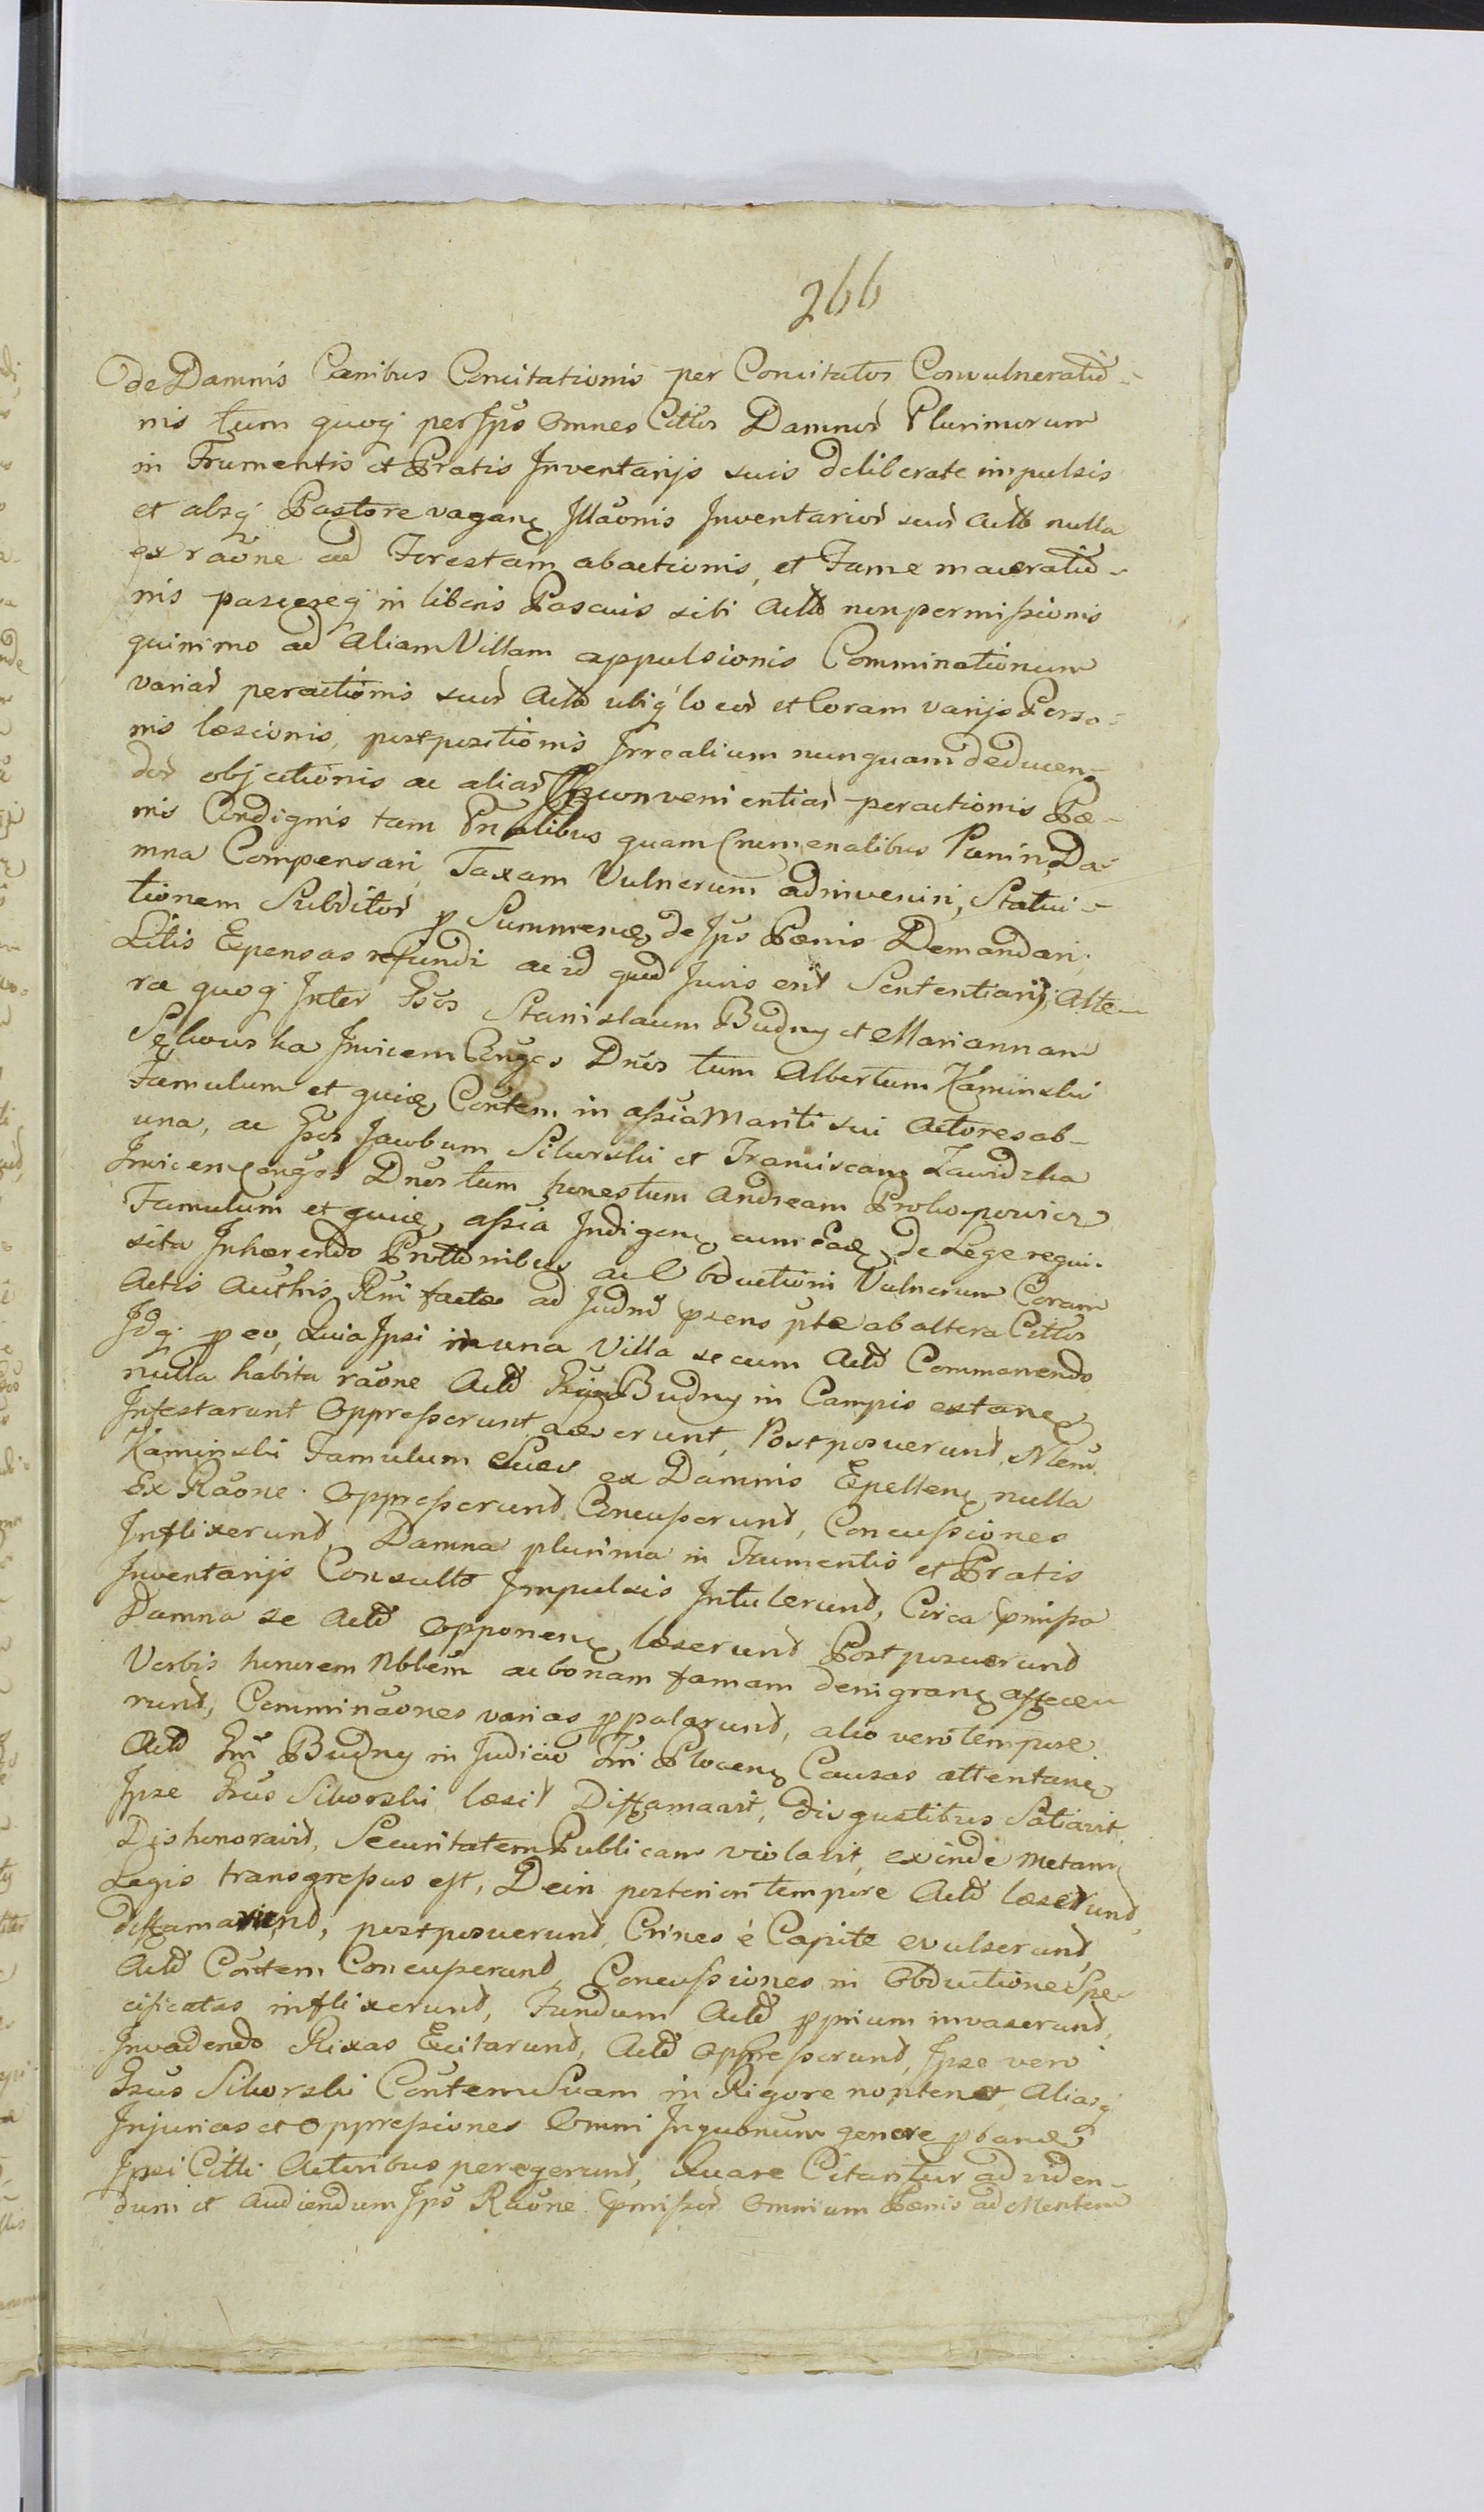 266
de Damnis Canibus Concitationis per Concitatos Convulneratio-
nis tum quoq per Ipos Omnes Cittos Damnor Plurimorum
in Frumentis et Pratis Inventarijs suis deliberate impulsis
et absq Pastore vagan Illaonis Inventarior suor Actto nulla
ex raone ad Forestam abactionis, et Fame maceratio-
nis pascereq in liberis Pascuis sibi Actto non permissionis
quinimo ad aliam Villam appulsionis Comminationum
variar peractionis suor Actto ubiq locor et Coram varijs Perso-
nis læsionis, postpositionis Irrealium nunquam deducen
dor objectionis ac aliar Inconvenientiar peractionis Pæ-
nis Condignis tam Pnalibus quam Crim enalibus Puniri, Da-
mna Compensari, Taxam Vulnerum adinveniri, Statui-
tionem Subditor p Summenæ, de Ipis Pænis Demandari,
Litis Expensas refundi ac id quod Juris erit Sententiari; Alte-
ra quoq Inter Gsos Stanislaum Budny et Mariannam
Sękowska Invicem Cnges Dnos tum Albertum Kaminski
Famulum et quiæ, Contem in assia Mariti sui Actores ab-
una, ac Gsos Jacobum Sikorski et Franciscam Zawidzka
Invicem Conges Dnos tum honestum Andream Prokopowicz
Famulum et quiæ, assia Indigen cum Eaæ, de Lege requi-
sita Inhærendo Prottonibus ac Obductioni Vulnerum Coram
Actis Authis Rni factæ ad Judm psens pte ab altera Cittos
Idq p eo, Quia Ipsi in una Villa secum Actto Commanendo
nulla habita raone Actto Budny in Campis extanem
Infestarunt Oppresserunt, læserunt, Postposuerunt,
Kaminski Famulum Suas ex Damnis Expellen nulla
Ex Raone Oppresserunt Concusserunt, Concussiones
Inflixerunt, Damna plurima in Frumentis et Pratis
Inventarijs Consulto Impulsis Intulerunt, Circa pmissa
Damna se Actto Opponen læserunt Postposuerunt
Verbis honorem Nbbem ac bonam famam denigran affece-
runt, Comminaones varias ppalarunt, alio vero tempore
Actto Budny in Judicio Plocen Causas attentan
Ipse Gsus Sikorski læsit Diffamavit, disgustibus Satiavit,
Dishonoravit, Securitatem Publicam violavit, exinde Metam
Legis transgressus est, Dein posteriori tempore Actto læserunt,
diffamarunt, postposuerunt, Crines è Capite evulserunt,
Actto Contem Concusserunt, Concussiones in Obductione Spe-
cificatas inflixerunt, Fundum Actto pprium invaserunt,
Invadendo Rixas Excitarunt, Actto Oppresserunt, Ipse vero
Gsus Sikorski Contem Suam in Rigore non tenet, Aliasq
Injurias et Oppressiones Omni Inquonum genere pbanæ
Ipsi Citti Actoribus peregerunt, Quare Citantur ad viden-
dum et Audiendum Ipos Raone pmissor Omnium Pænis ad Mentem